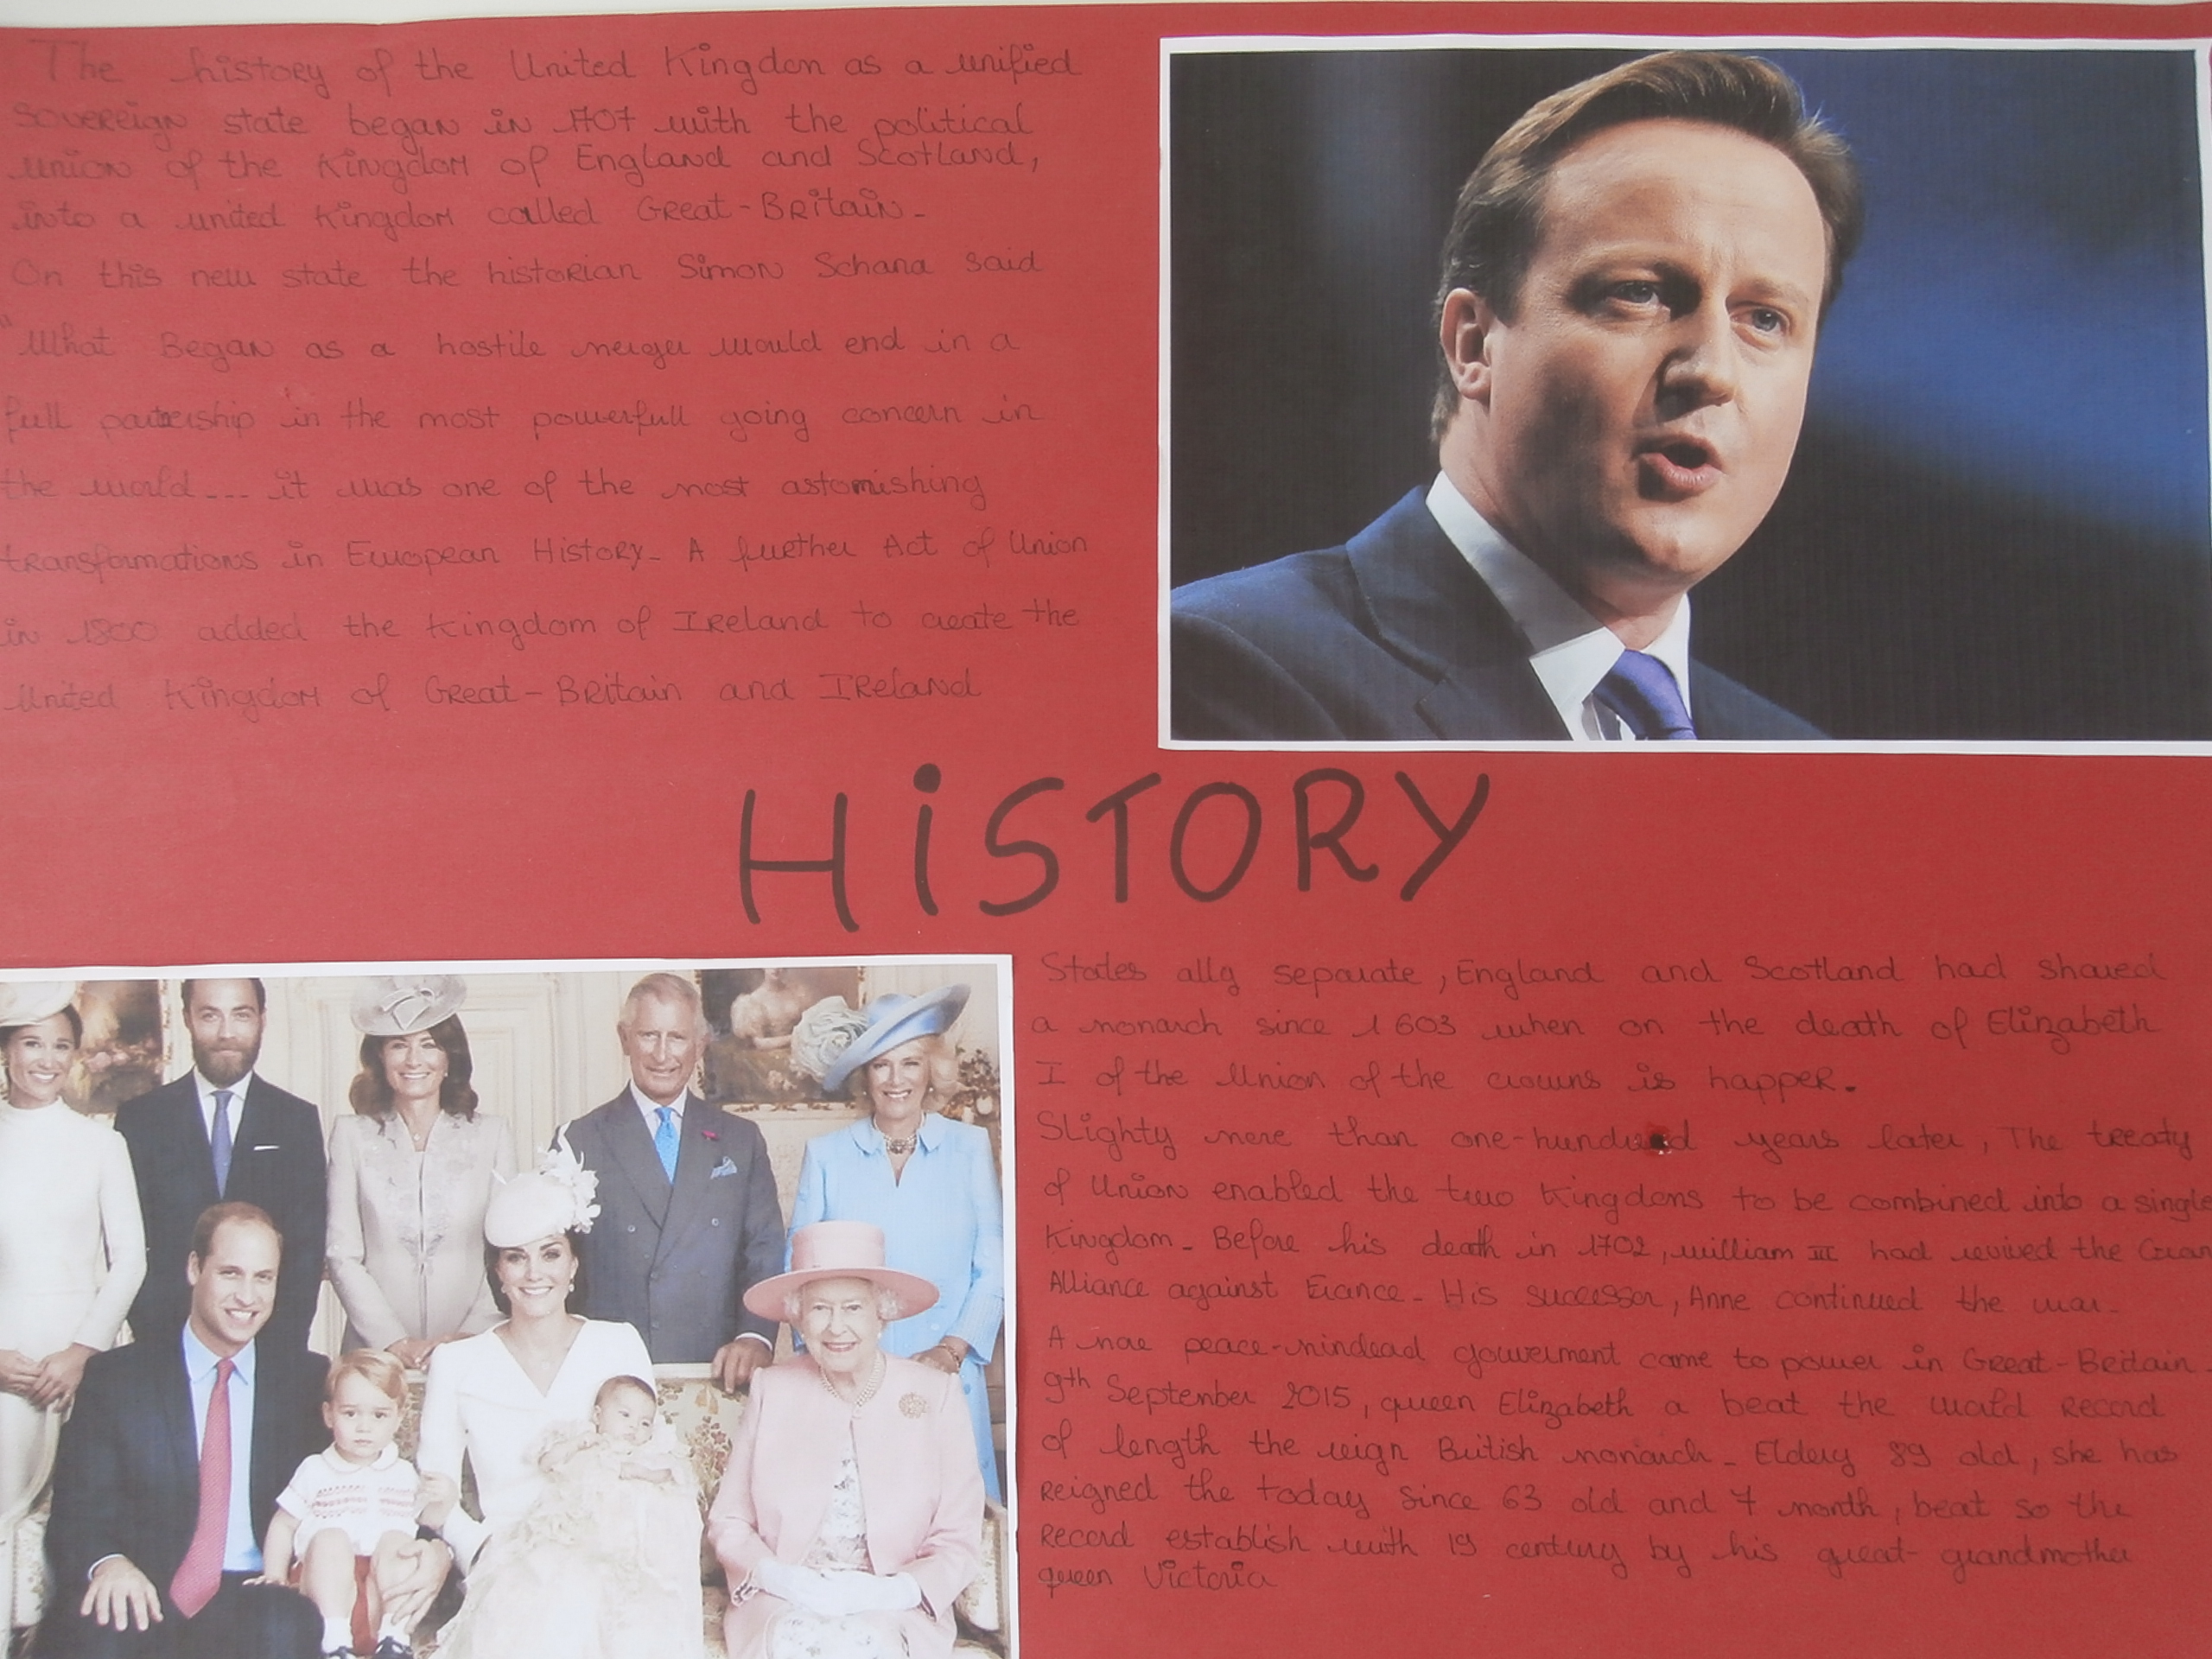 The history of the United Kingdom as a unified
sovereign state began in 1707 with the political
union of the Kingdom of England and Scotland,
into a united Kingdom called Great-Britain.
On this new state the historian Simon Schana said
"What Began as a hostile merger would end in a
full partnership in the most powerfull going concern in
the world... it was one of the most astomishing
transformations in European History. A further Act of Union
in 1800 added the Kingdom of Ireland to create the
United Kingdom of Great-Britain and Ireland
HiSTORY
States ally separate, England and Scotland had shared
a monarch since 1603 when on the death of Elizabeth
I of the Union of the crowns is happer.
Slighty more than one-hundred years later, The treaty
of Union enabled the two Kingdoms to be combined into a single
Kingdom. Before his death in 1702, william III had revived the
Alliance against France. His successor, Anne continued the war.
A peace-mindead gouverment came to power in Great-Britain
9th September 2015, queen Elizabeth a beat the world record
of length the reign British monarch. Eldery 89 old, she has
reigned the today since 63 old and 7 month, beat so the
record establish with 19 century by his great-grandmother
queen Victoria